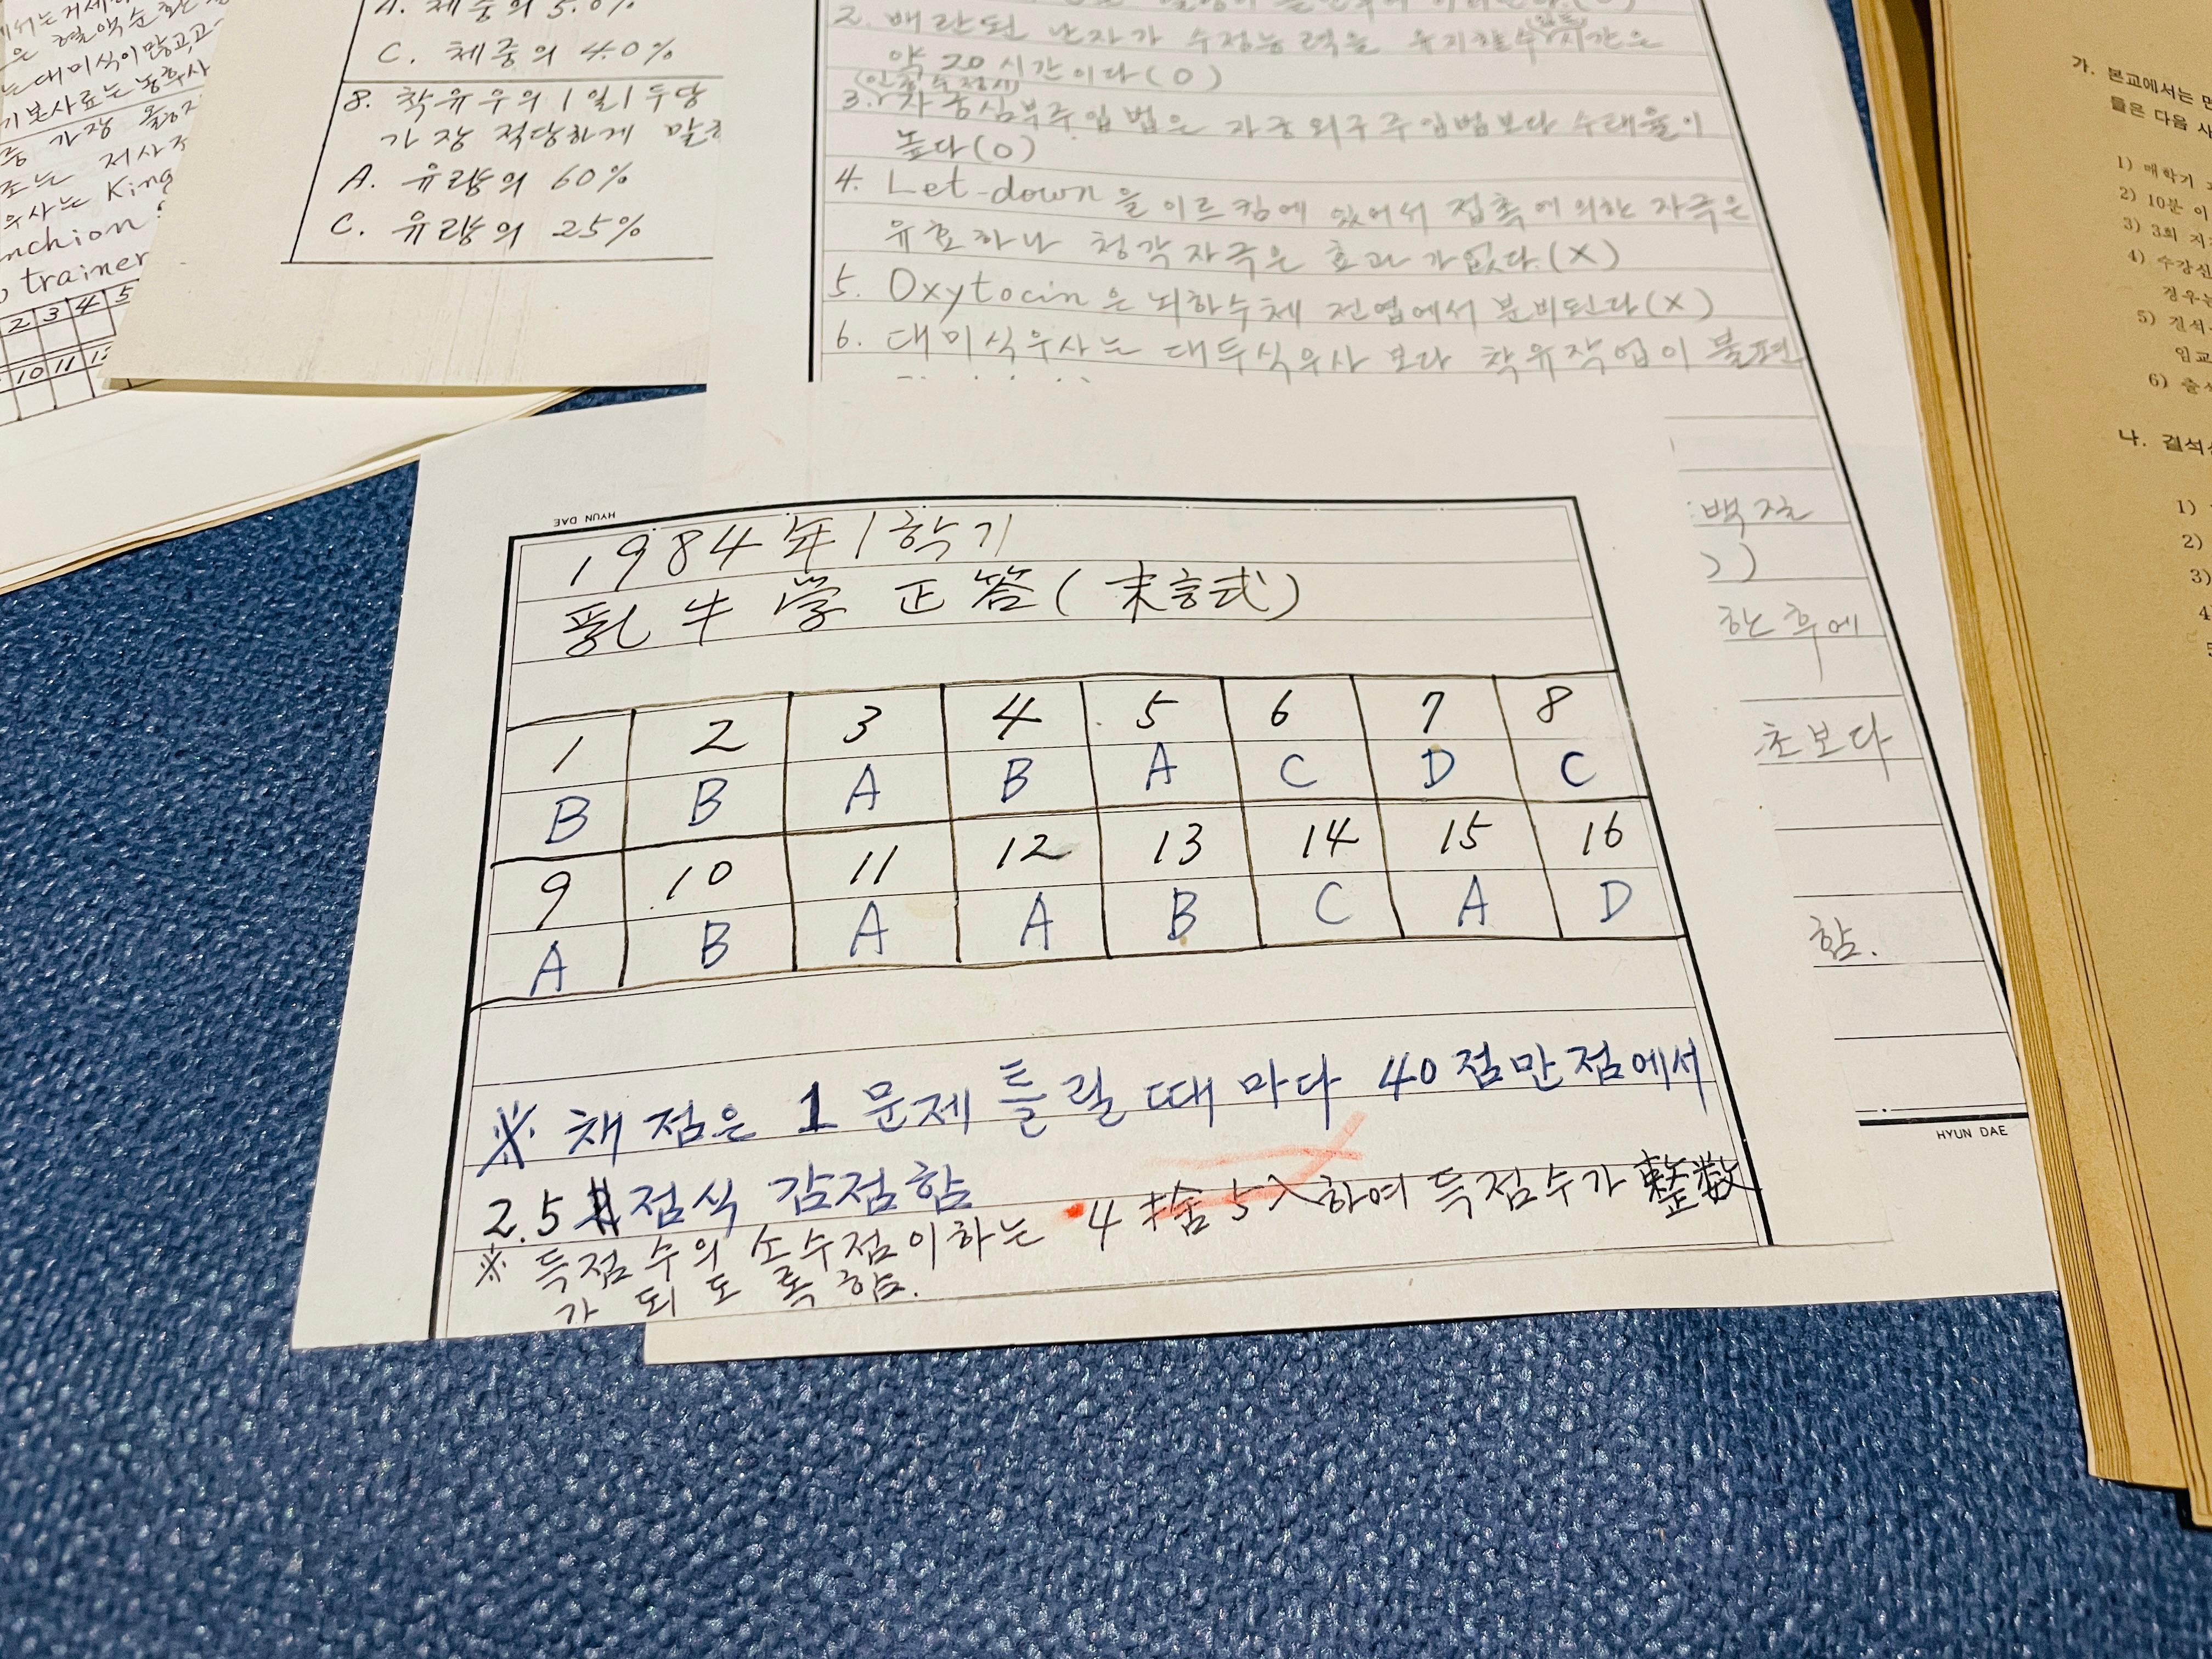 A. 체중의 5.0%
C. 체중의 4.0%
8. 착유우의 1일 1두당
가장 적당하게 말
A. 유량의 60%
C. 유량의 25%
는 대미식이 많고, 고
기본사료는 농후사
중 가장
조는
우사는 King
nchion
trainer
2 3 4 5
10 11 12
2. 배란된 난자가 수정능력을 유지할 수 시간은
약 20시간이다(O)
(인공수정시)
3. 자궁심부주입법은 자궁외구주입법보다 수태율이
높다(O)
4. Let-down을 이르킴에 있어서 접촉에 의한 자극은
유효하나 청각자극은 효과가 없다.(X)
5. Oxytocin은 뇌하수체 전엽에서 분비된다(X)
6. 대미식우사는 대두식우사 보다 착유작업이 불편
HYUN DAE
1984年 1학기
乳牛学 正答(末試)
1 2 3 4 5 6 7 8
B B A B A C D C
9 10 11 12 13 14 15 16
A B A A B C A D
※ 채점은 1문제 틀릴 때 마다 40점만점에서
2.5 점식 감점함
※ 득점수의 소수점이하는 4捨5入하여 득점수가 整数
가 되도록 함.
한 후에
초보다
함.
HYUN DAE
가. 본교에서는
들은 다음 사
1) 매학기
2) 10분 이
3) 3회 지
4) 수강신
경우는
5) 결석
임교
6) 출석
나. 결석
1)
2)
3)
4
5